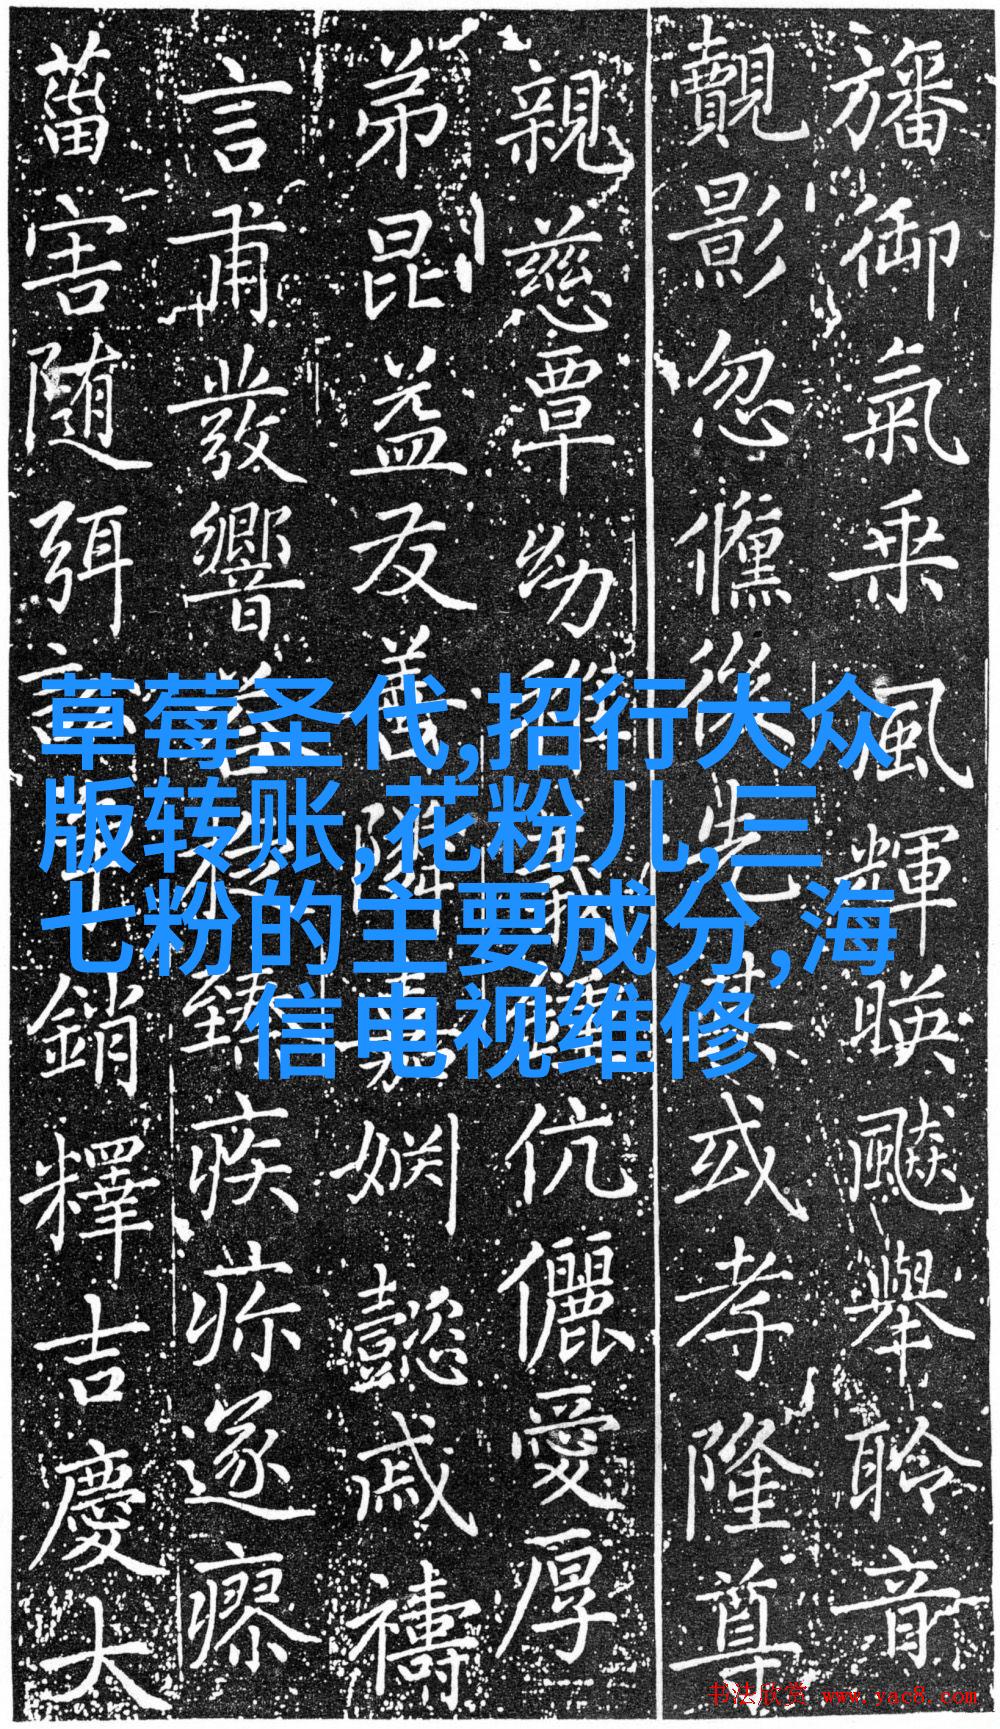 旛御氣乘風輝暎飈舉聆音
覿影忽後先其或孝隆尊
親慈覃幼義伉儷愛厚
弟昆益友善隣嘉姻懿戚禱
言甫發響臻疾疹遂瘳
菑害随弭銷釋吉慶大
草莓圣代,招行大众
版转账,花粉儿,三
七粉的主要成分,海
信电视维修
书法欣赏 www.yac8.com